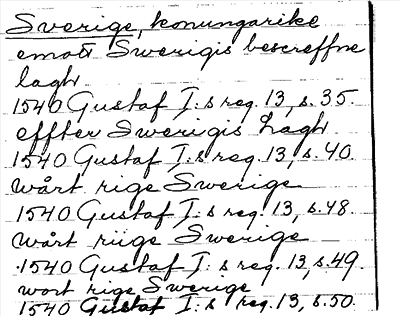 Sverige, konungarike
emott Swerigis bescreffne
lagh
1540 Gustaf I:s reg. 13, s. 35.
effter Swerigis Lagh
1540 Gustaf I:s reg. 13, s. 40.
wårt rige Swerige
1540 Gustaf I:s reg. 13, s. 48.
wårt riige Swerige
1540 Gustaf I:s reg. 13, s. 49.
wort rige Swerige
1540 Gustaf I:s reg. 13, s. 50.